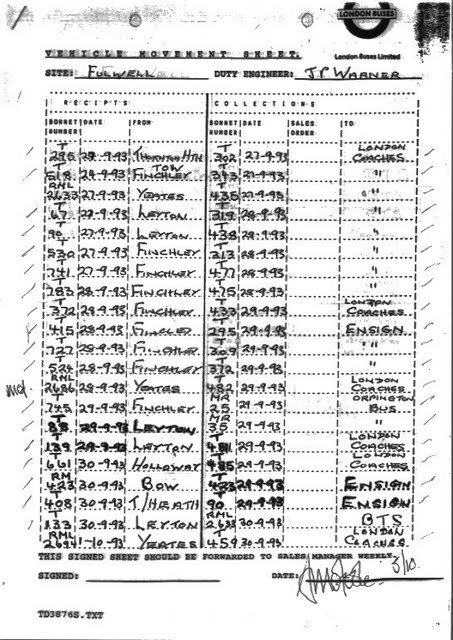 LONDON BUSES
VEHICLE MOVEMENT SHEET.
London Buses Limited
SITE: FULWELL DUTY ENGINEER: J P WARNER
RECEIPTS COLLECTIONS
BONNET NUMBER DATE FROM BONNET NUMBER DATE SALES ORDER: TO
T 295 28-9-93 HTH T 302 27-9-93 LONDON COACHES
T 518 FINCHLEY T 343 27-9-93 "
RML 2633 27-9-93 YEATES T 435 27-9-93 "
T 67 LEYTON T 319 28-9-93 "
T 90 27-9-93 LEYTON T 438 28-9-93 "
T 530 27-9-93 FINCHLEY T 313 28-9-93 "
T 741 27-9-93 FINCHLEY T 477 28-9-93 "
T 783 28-9-93 FINCHLEY T 475 28-9-93 "
T 372 28-9-93 FINCHLEY T 433 28-9-93 LONDON COACHES
T 415 28-9-93 T 295 29-9-93 ENSIGN
T 727 28-9-93 FINCHLEY T 309 29-9-93 "
T 524 28-9-93 FINCHLEY T 372 29-9-93 "
RML 2686 28-9-93 YEATES T 482 29-9-93 LONDON COACHES
T 745 29-9-93 FINCHLEY MR 25 29-9-93 ORPINGTON BUS
T 88 29-9-93 LEYTON MR 35 29-9-93 "
T 139 29-9-93 LEYTON T 481 29-9-93 LONDON COACHES
T 661 30-9-93 HOLLOWAY T 485 29-9-93 LONDON COACHES
RM 423 30-9-93 BOW T 423 29-9-93 ENSIGN
T 408 30-9-93 T/HEATH T 90 29-9-93 ENSIGN
T 133 30-9-93 LEYTON RML 2633 30-9-93 BTS
RML 1-10-93 YEATES T 459 30-9-93 LONDON COACHES
THIS SIGNED SHEET SHOULD BE FORWARDED TO SALES MANAGER WEEKLY.
SIGNED: DATE: 5/10
TD3876S.TXT